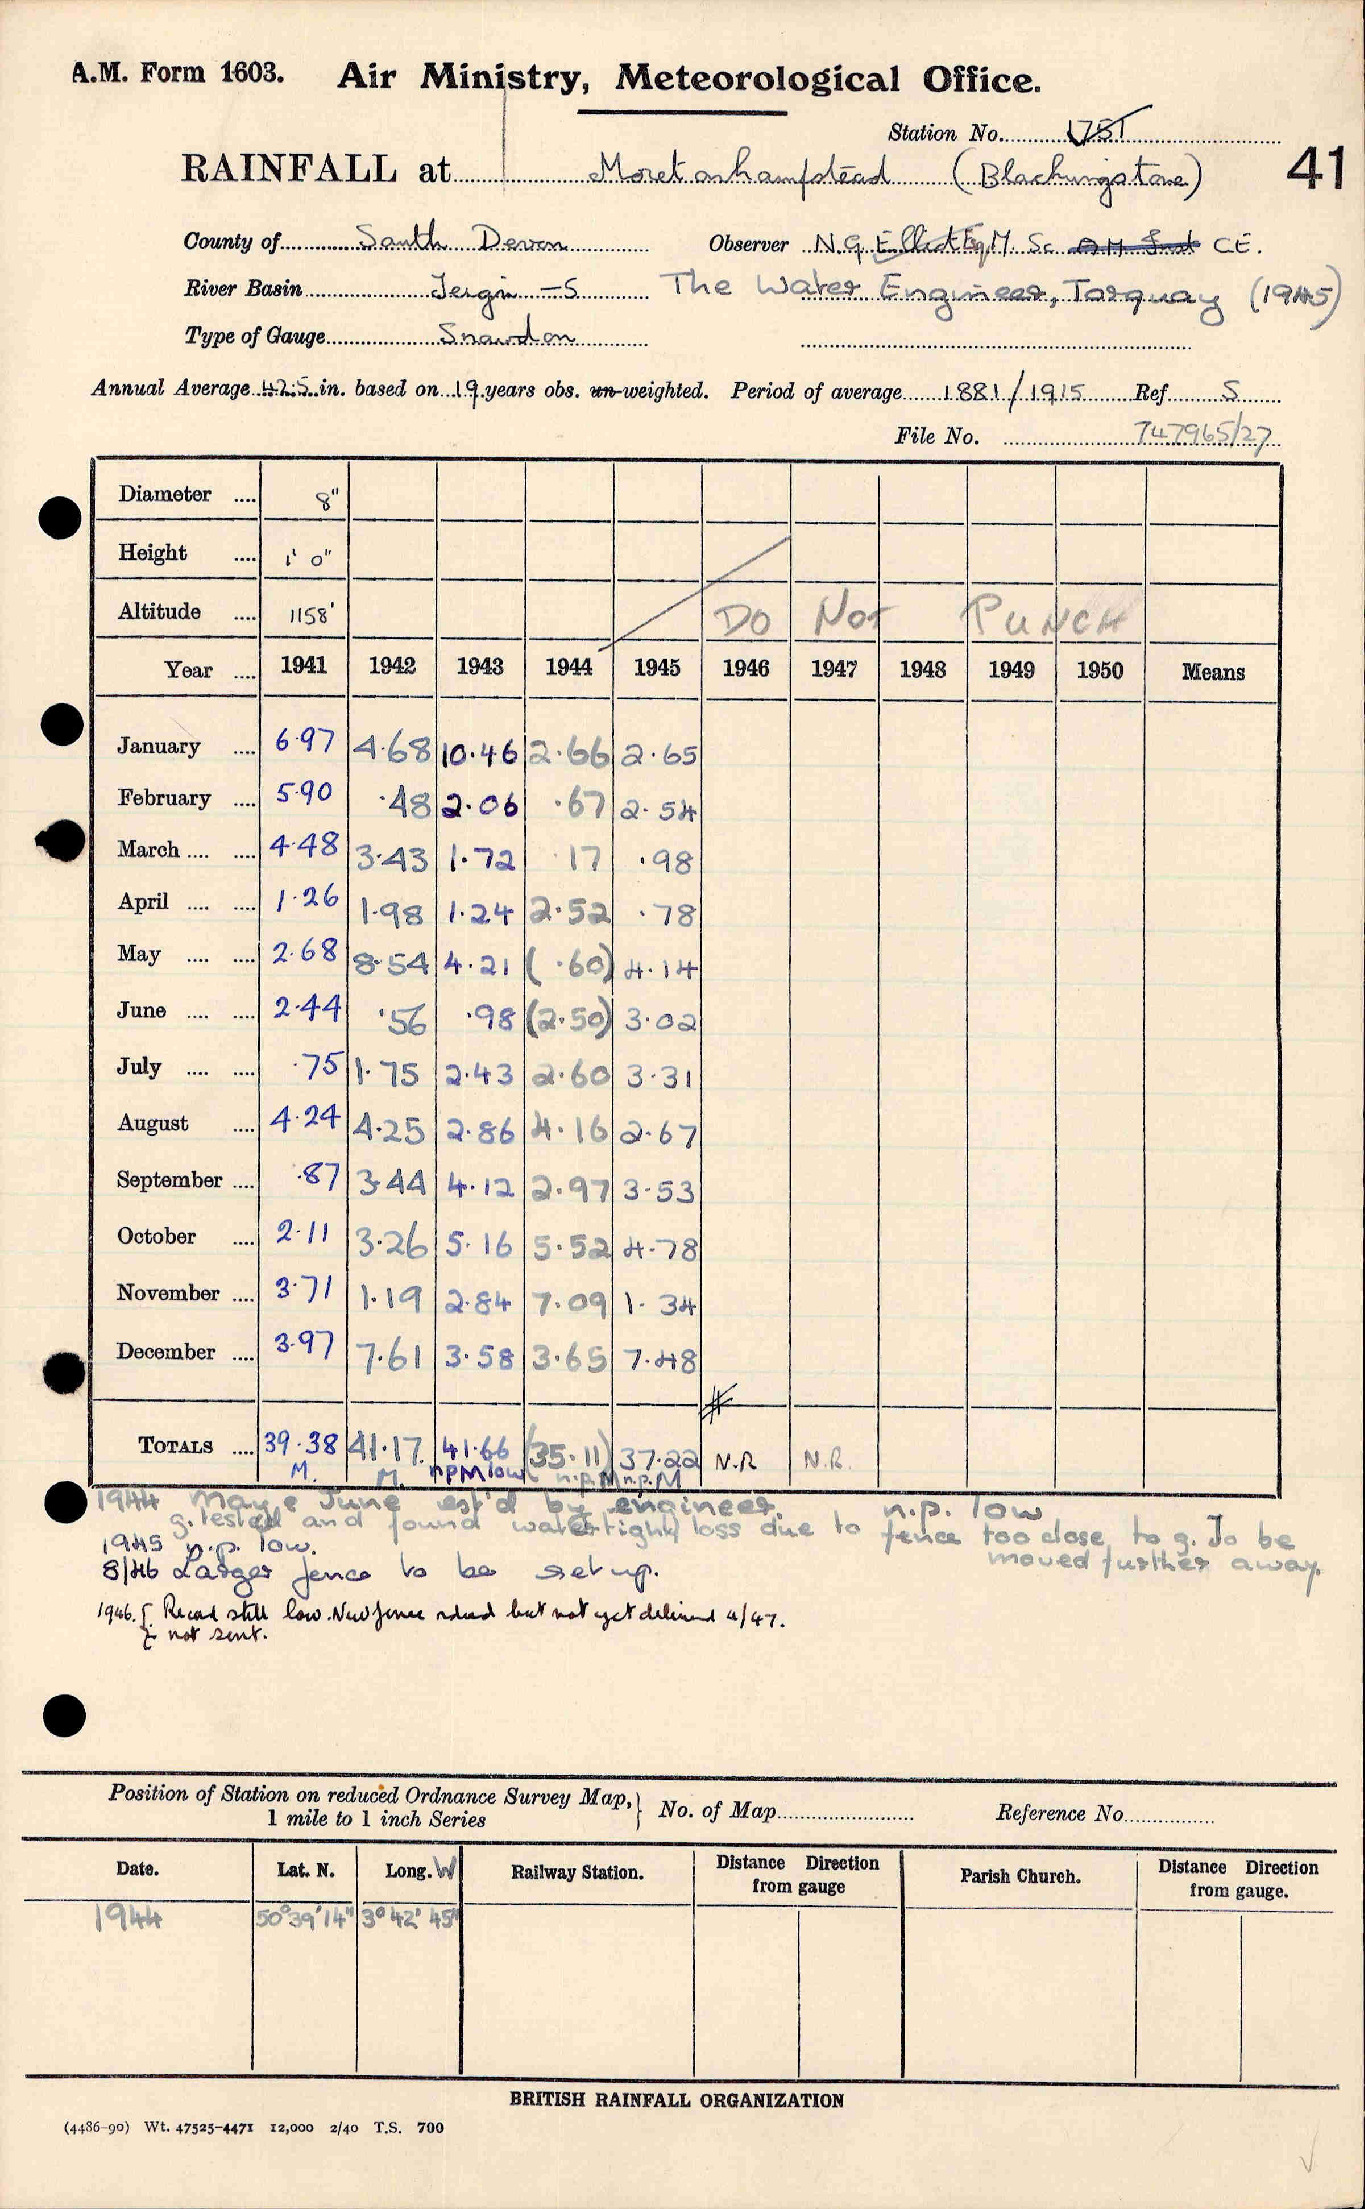 A.M. Form 1603. Air Ministry, Meteorological Office.
Station No. 1751
RAINFALL at Moretonhampstead (Blackingstone) 41
County of South Devon Observer N.G. Elliot Esq. M. Sc. A.M. Inst C.E.
River Basin Teign - S The Water Engineer, Torquay (1945)
Type of Gauge Snowdon
Annual Average 42.5 in. based on 19 years obs. un-weighted. Period of average 1881/1915 Ref S
File No. 747965/27
Diameter .... 8"
Height .... 1' 0"
Altitude .... 1158' DO NOT PUNCH
Year .... 1941 1942 1943 1944 1945 1946 1947 1948 1949 1950 Means
January .... 6.97 4.68 10.46 2.66 2.65
February .... 5.90 .48 2.06 .67 2.54
March .... .... 4.48 3.43 1.72 .17 .98
April .... .... 1.26 1.98 1.24 2.52 .78
May .... .... 2.68 8.54 4.21 (.60) 4.14
June .... .... 2.44 .56 .98 (2.50) 3.02
July .... .... .75 1.75 2.43 2.60 3.31
August .... 4.24 4.25 2.86 4.16 2.67
September .... .87 3.44 4.12 2.97 3.53
October .... 2.11 3.26 5.16 5.52 4.78
November .... 3.71 1.19 2.84 7.09 1.34
December .... 3.97 7.61 3.58 3.65 7.48
TOTALS .... 39.38 41.17 41.66 (35.11) 37.22 N.R N.R.
M. M. npM low n.p.M n.p.M
1944 May & June est'd by engineer. n.p. low
g. tested and found watertight loss due to fence too close to g. To be
moved further away.
1945 n.p. low.
8/46 Larger fence to be set up.
1946. { Record still low. New fence but not yet delivered 4/47.
not sent.
Position of Station on reduced Ordnance Survey Map, } No. of Map Reference No.
1 mile to 1 inch Series
Date. Lat. N. Long. W Railway Station. Distance Direction from gauge Parish Church. Distance Direction from gauge.
1944 50°39'14" 3°42'45"
BRITISH RAINFALL ORGANIZATION
(4486-90) Wt. 47525-4471 12,000 2/40 T.S. 700